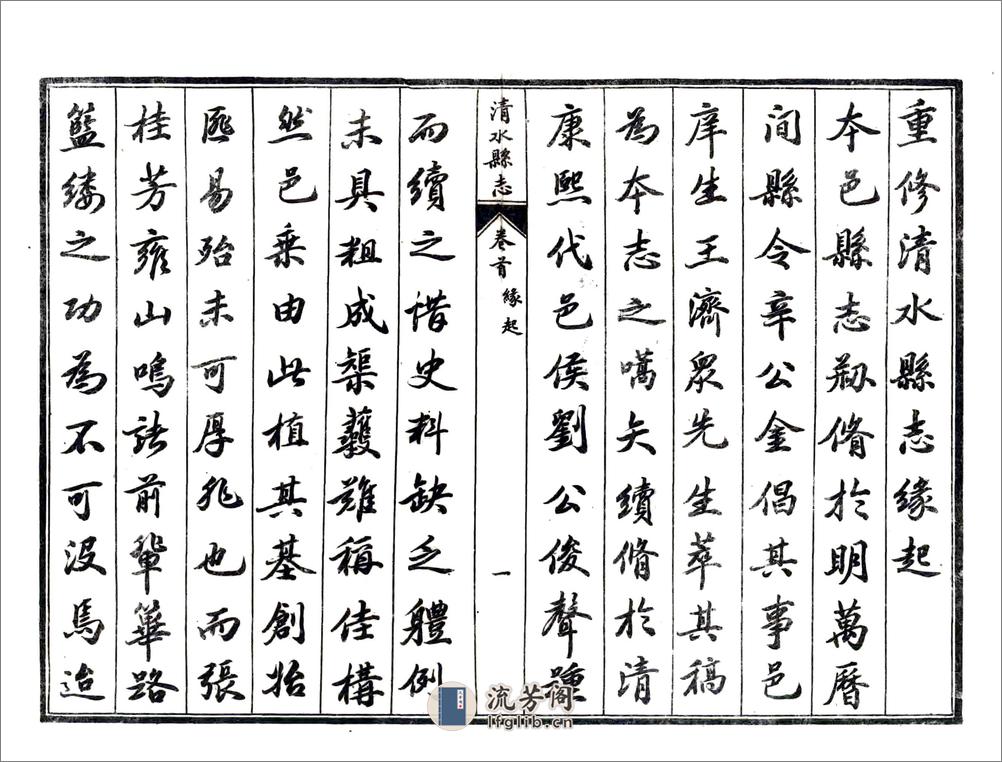 重修清水縣志緣起
本邑縣志刱脩於明萬曆
间縣令辛公金倡其事邑
庠生王濟衆先生萃其稿
為本志之嚆矢續脩於清
康熙代邑侯劉公俊聲踵
清水縣志 卷首 緣起 一
而續之惜史料缺乏體例
未具粗成榘彠難稱佳構
然邑乗由此植其基創始
匪易殆未可厚非也而張
桂芳雍山鳴諸前輩篳路
籃縷之功為不可没焉迨
流芳阁
lfglib.cn